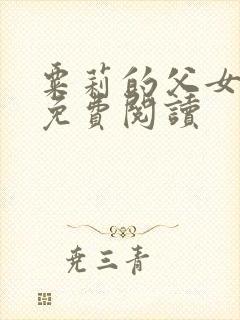 粟莉的父女
免費閱讀
尭三青